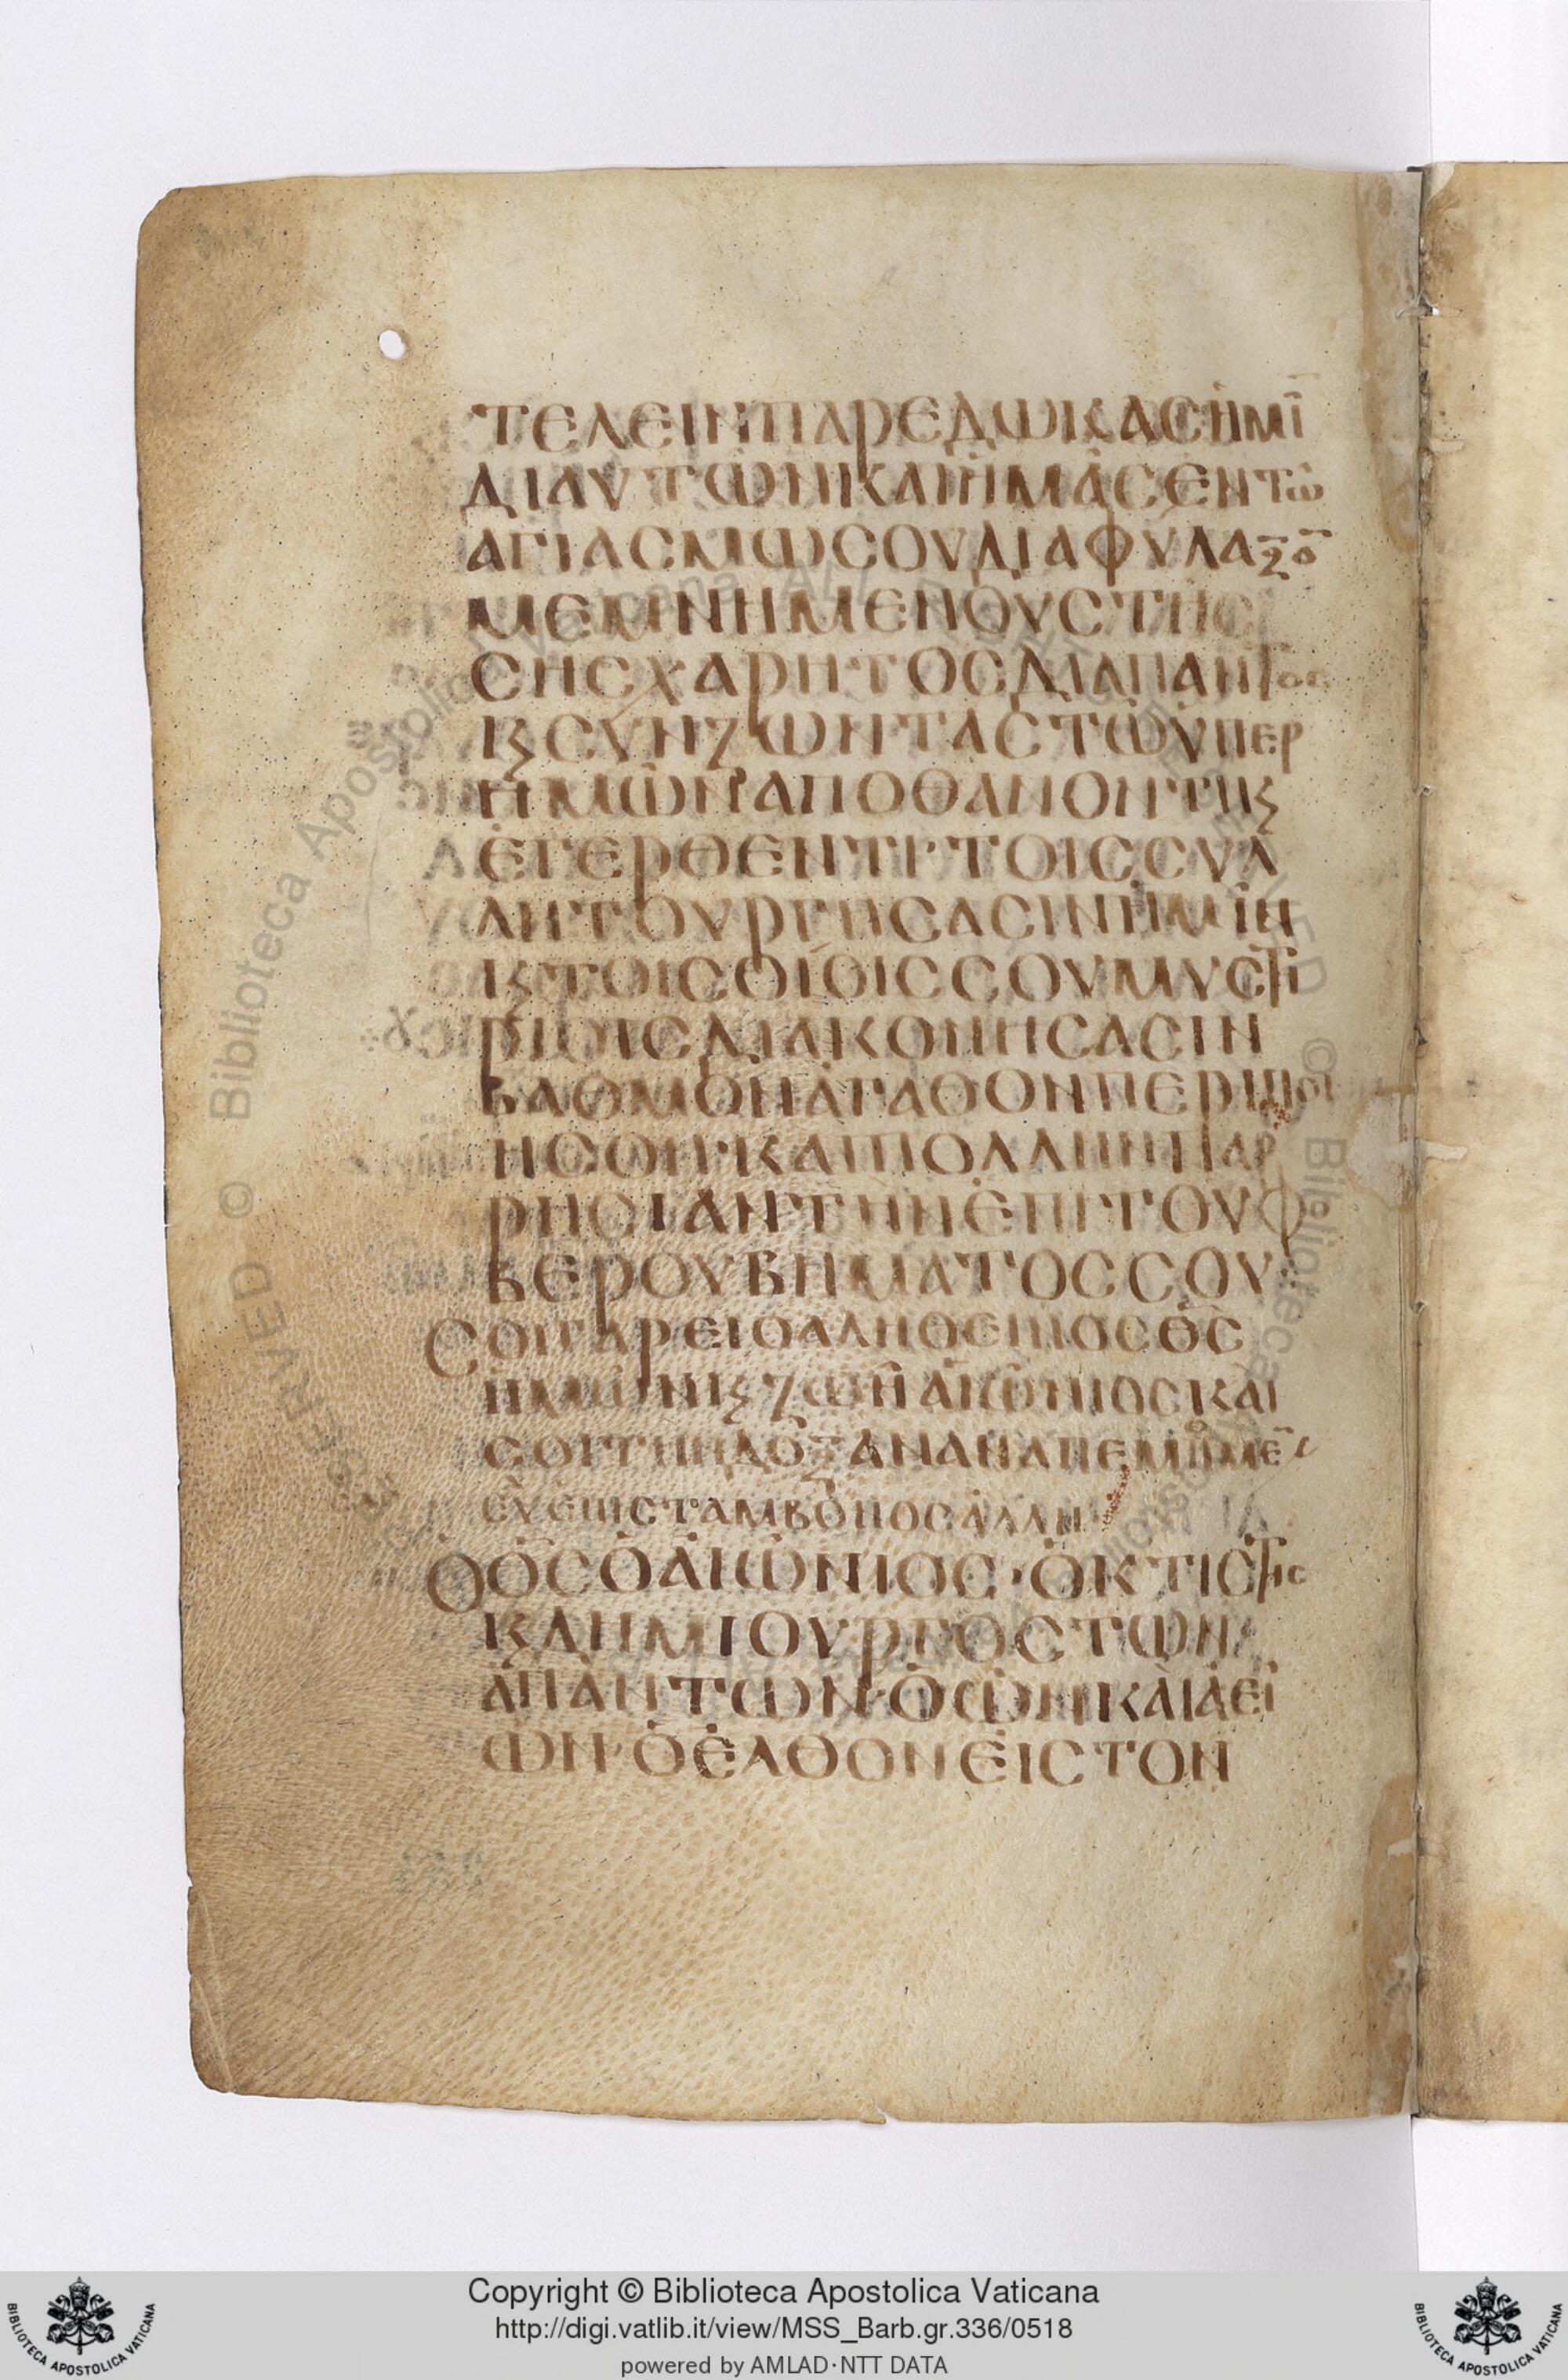 ΤΕΛΕΙΝΠΑΡΕΔΩΚΑΣΗΜΙ̅
ΔΙΑΥΤΩΝΚΑΙΗΜΑΣΕΝΤΩ
ΑΓΙΑΣΜΩΣΟΥΔΙΑΦΥΛΑΞΟ̅
ΜΕΜΝΗΜΕΝΟΥΣΤΗΣ
ΣΗΣΧΑΡΗΤΟΣΔΙΑΠΑΝΤΟΣ
Κ̅ΣΥΝΖΩΝΤΑΣΤΩΥΠΕΡ
ΗΜΩΝΑΠΟΘΑΝΟΝΤΙΚ̅
ΕΓΕΡΘΕΝΤΙΤΟΙΣΣΥΛ
ΛΗΤΟΥΡΓΗΣΑΣΙΝΗΜΙΝ
Κ̅ΤΟΙΣΘΙΟΙΣΣΟΥΜΥΣΤΗ
ΡΙΟΙΣΔΙΑΚΟΝΗΣΑΣΙΝ
ΒΑΘΜΟΝΑΓΑΘΟΝΠΕΡΙΠΟΙ
ΗΣΟΝ·ΚΑΙΠΟΛΛΗΝΠΑΡ
ΡΗΣΙΑΝΤΗΝΕΠΙΤΟΥΦΟ
ΒΕΡΟΥΒΗΜΑΤΟΣΣΟΥ
ΣΟΙΓΑΡΕΙΟΑΛΗΘΕΙΝΟΣΘ̅Σ̅
ΗΜΩΝΚ̅ΖΩΗΑΙΩΝΙΟΣΚΑΙ
ΣΟΙΤΗΝΔΟΞΑΝΑΝΑΠΕΜΠΟΜΕ̅
ΕΥΧΕΠΙΣΤΑΜΒΟΝΟΣΑΛΛΗ
ΟΘ̅Σ̅ΟΑΙΩΝΙΟΣ·ΟΚΤΙΣΤΗΣ
Κ̅ΔΗΜΙΟΥΡΓΟΣΤΩΝ
ΑΠΑΝΤΩΝ·ΟΩΝΚΑΙΑΕΙ
ΩΝ·ΟΕΛΘΟΝΕΙΣΤΟΝ
Copyright © Biblioteca Apostolica Vaticana
http://digi.vatlib.it/view/MSS_Barb.gr.336/0518
powered by AMLAD·NTT DATA
BIBLIOTECA APOSTOLICA VATICANA
BIBLIOTECA APOSTOLICA VATICANA